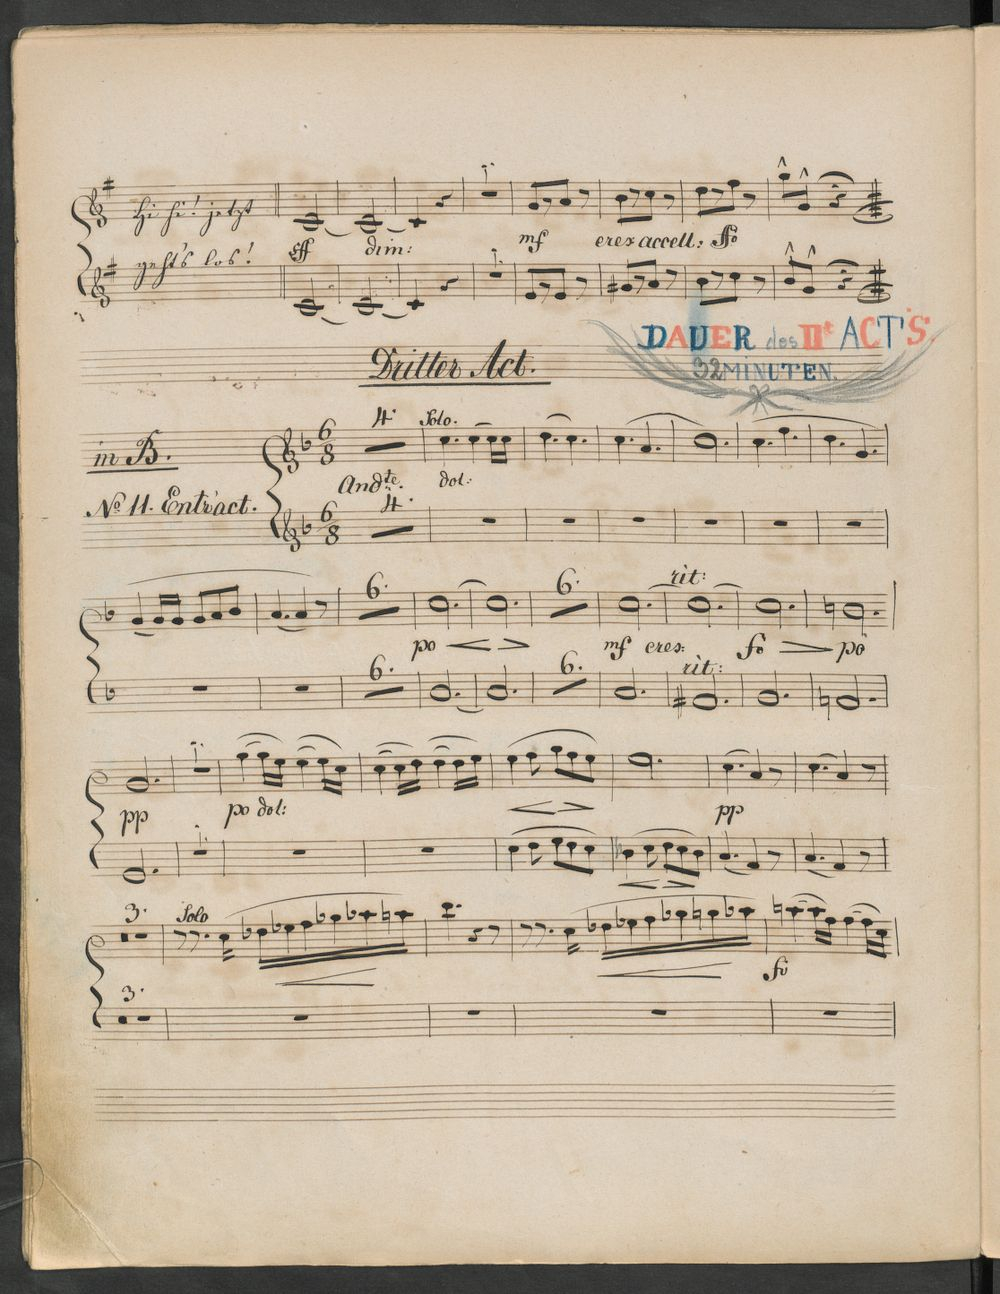 Hi hi! jetzt
geht's los!
ff dim: mf cres accell: ffo
DAUER des IIt ACT'S.
32 MINUTEN.
Dritter Act.
in B.
4. Solo.
Andte. dol:
No 11. Entr'act.
4.
6. 6. rit:
po mf cres: fo po
6. 6. rit:
pp po dol: pp
3. Solo
fo
3.